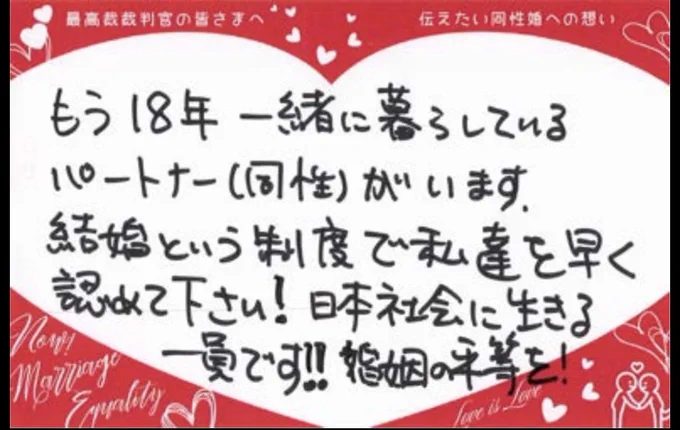 最高裁裁判官の皆さまへ
伝えたい同性婚への想い
もう18年 一緒に暮らしている
パートナー(同性)がいます.
結婚という制度で私達を早く
認めて下さい! 日本社会に生きる
一員です!! 婚姻の平等を!
Now!
Marriage
Equality
Love is Love